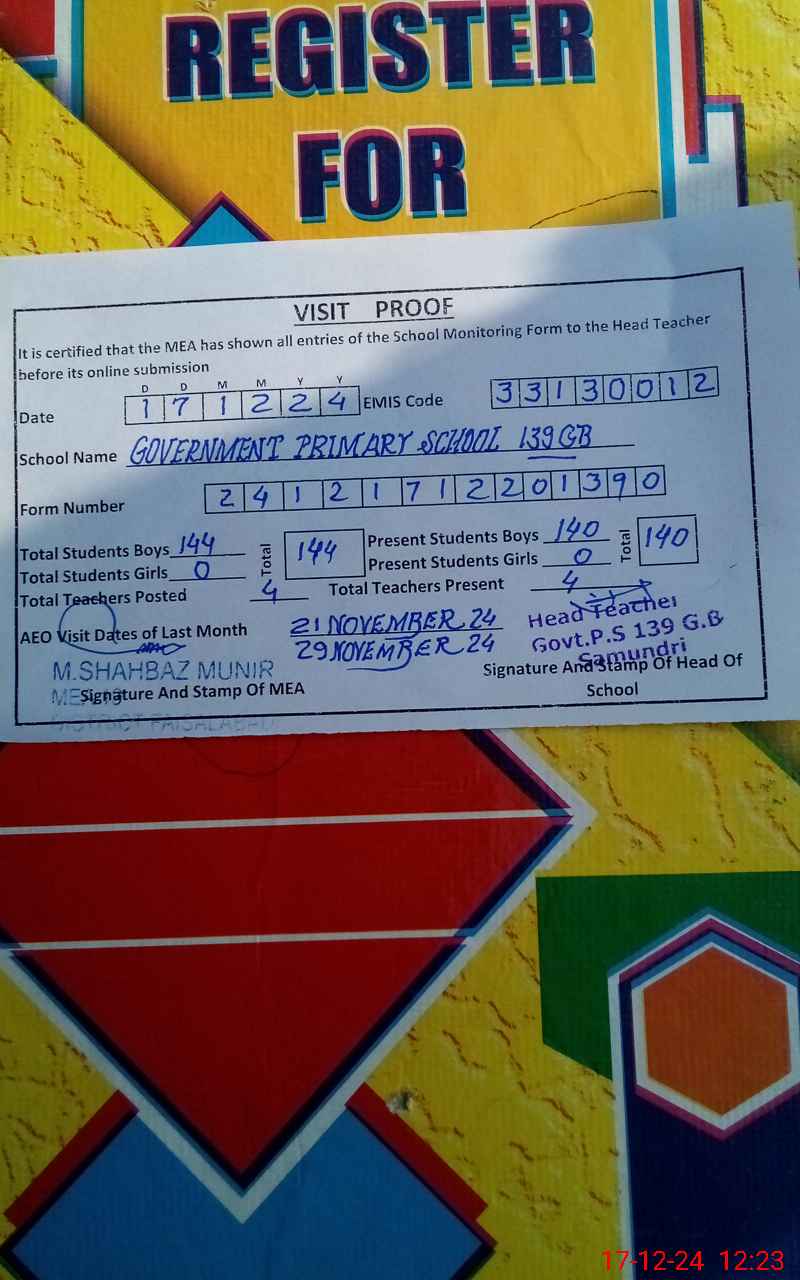 REGISTER
FOR
VISIT PROOF
It is certified that the MEA has shown all entries of the School Monitoring Form to the Head Teacher
before its online submission
D D M M Y Y
Date 1 7 1 2 2 4 EMIS Code 3 3 1 3 0 0 1 2
School Name GOVERNMENT PRIMARY SCHOOL 139 GB
Form Number 2 4 1 2 1 7 1 2 2 0 1 3 9 0
Total Students Boys 144 Total 144 Present Students Boys 140 Total 140
Total Students Girls 0 Present Students Girls 0
Total Teachers Posted 4 Total Teachers Present 4
AEO Visit Dates of Last Month 21 NOVEMBER 24
29 NOVEMBER 24
Head Teacher
Govt.P.S 139 G.B
Samundri
M.SHAHBAZ MUNIR
Signature And Stamp Of MEA
DISTRICT FAISALABAD
Signature And Stamp Of Head Of
School
17-12-24 12:23